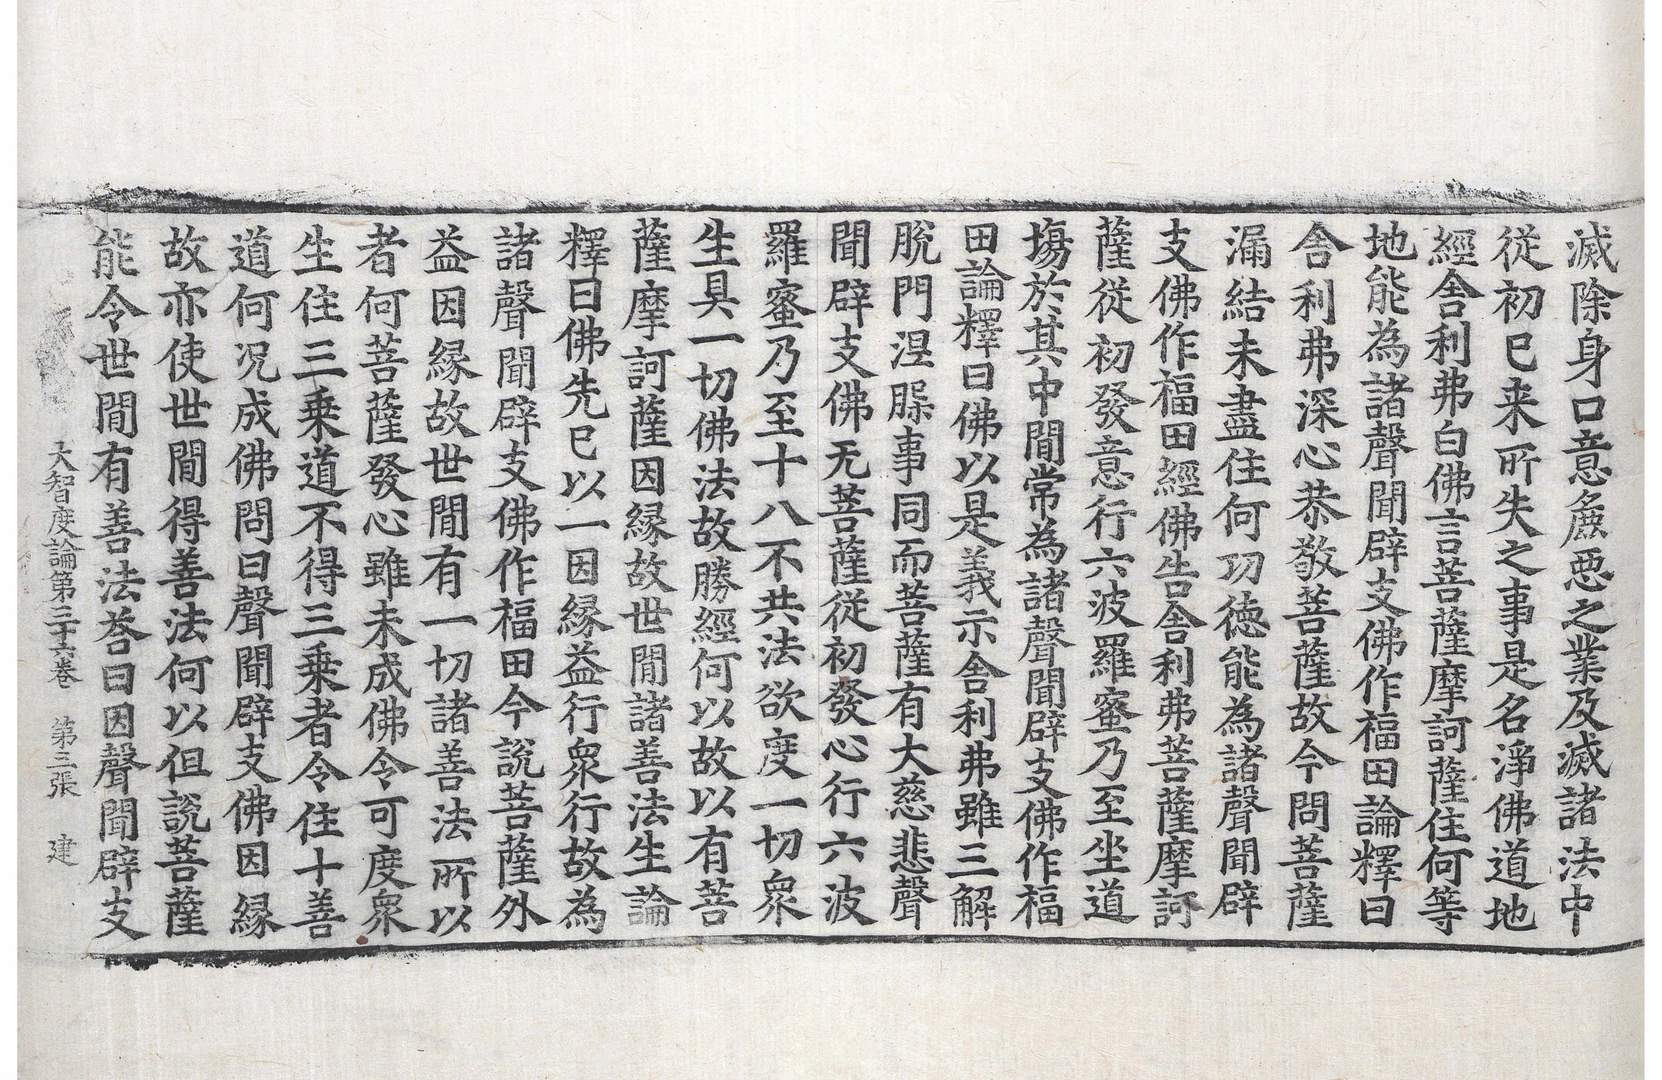 滅除身口意麁惡之業及滅諸法中
從初已来所失之事是名淨佛道地
經舍利弗白佛言菩薩摩訶薩住何等
地能為諸聲聞辟支佛作福田論釋曰
舍利弗深心恭敬菩薩故今問菩薩
漏結未盡住何功德能為諸聲聞辟
支佛作福田經佛告舍利弗菩薩摩訶
薩從初發意行六波羅蜜乃至坐道
場於其中閒常為諸聲聞辟支佛作福
田論釋曰佛以是義示舍利弗雖三解
脫門涅槃事同而菩薩有大慈悲聲
聞辟支佛无菩薩從初發心行六波
羅蜜乃至十八不共法欲度一切衆
生具一切佛法故勝經何以故以有菩
薩摩訶薩因緣故世閒諸善法生論
釋曰佛先已以一因緣益行衆行故為
諸聲聞辟支佛作福田今說菩薩外
益因緣故世閒有一切諸善法所以
者何菩薩發心雖未成佛令可度衆
生住三乗道不得三乗者令住十善
道何况成佛問曰聲聞辟支佛因緣
故亦使世閒得善法何以但說菩薩
能令世閒有善法荅曰因聲聞辟支
大智度論第三十六卷 第三張 建